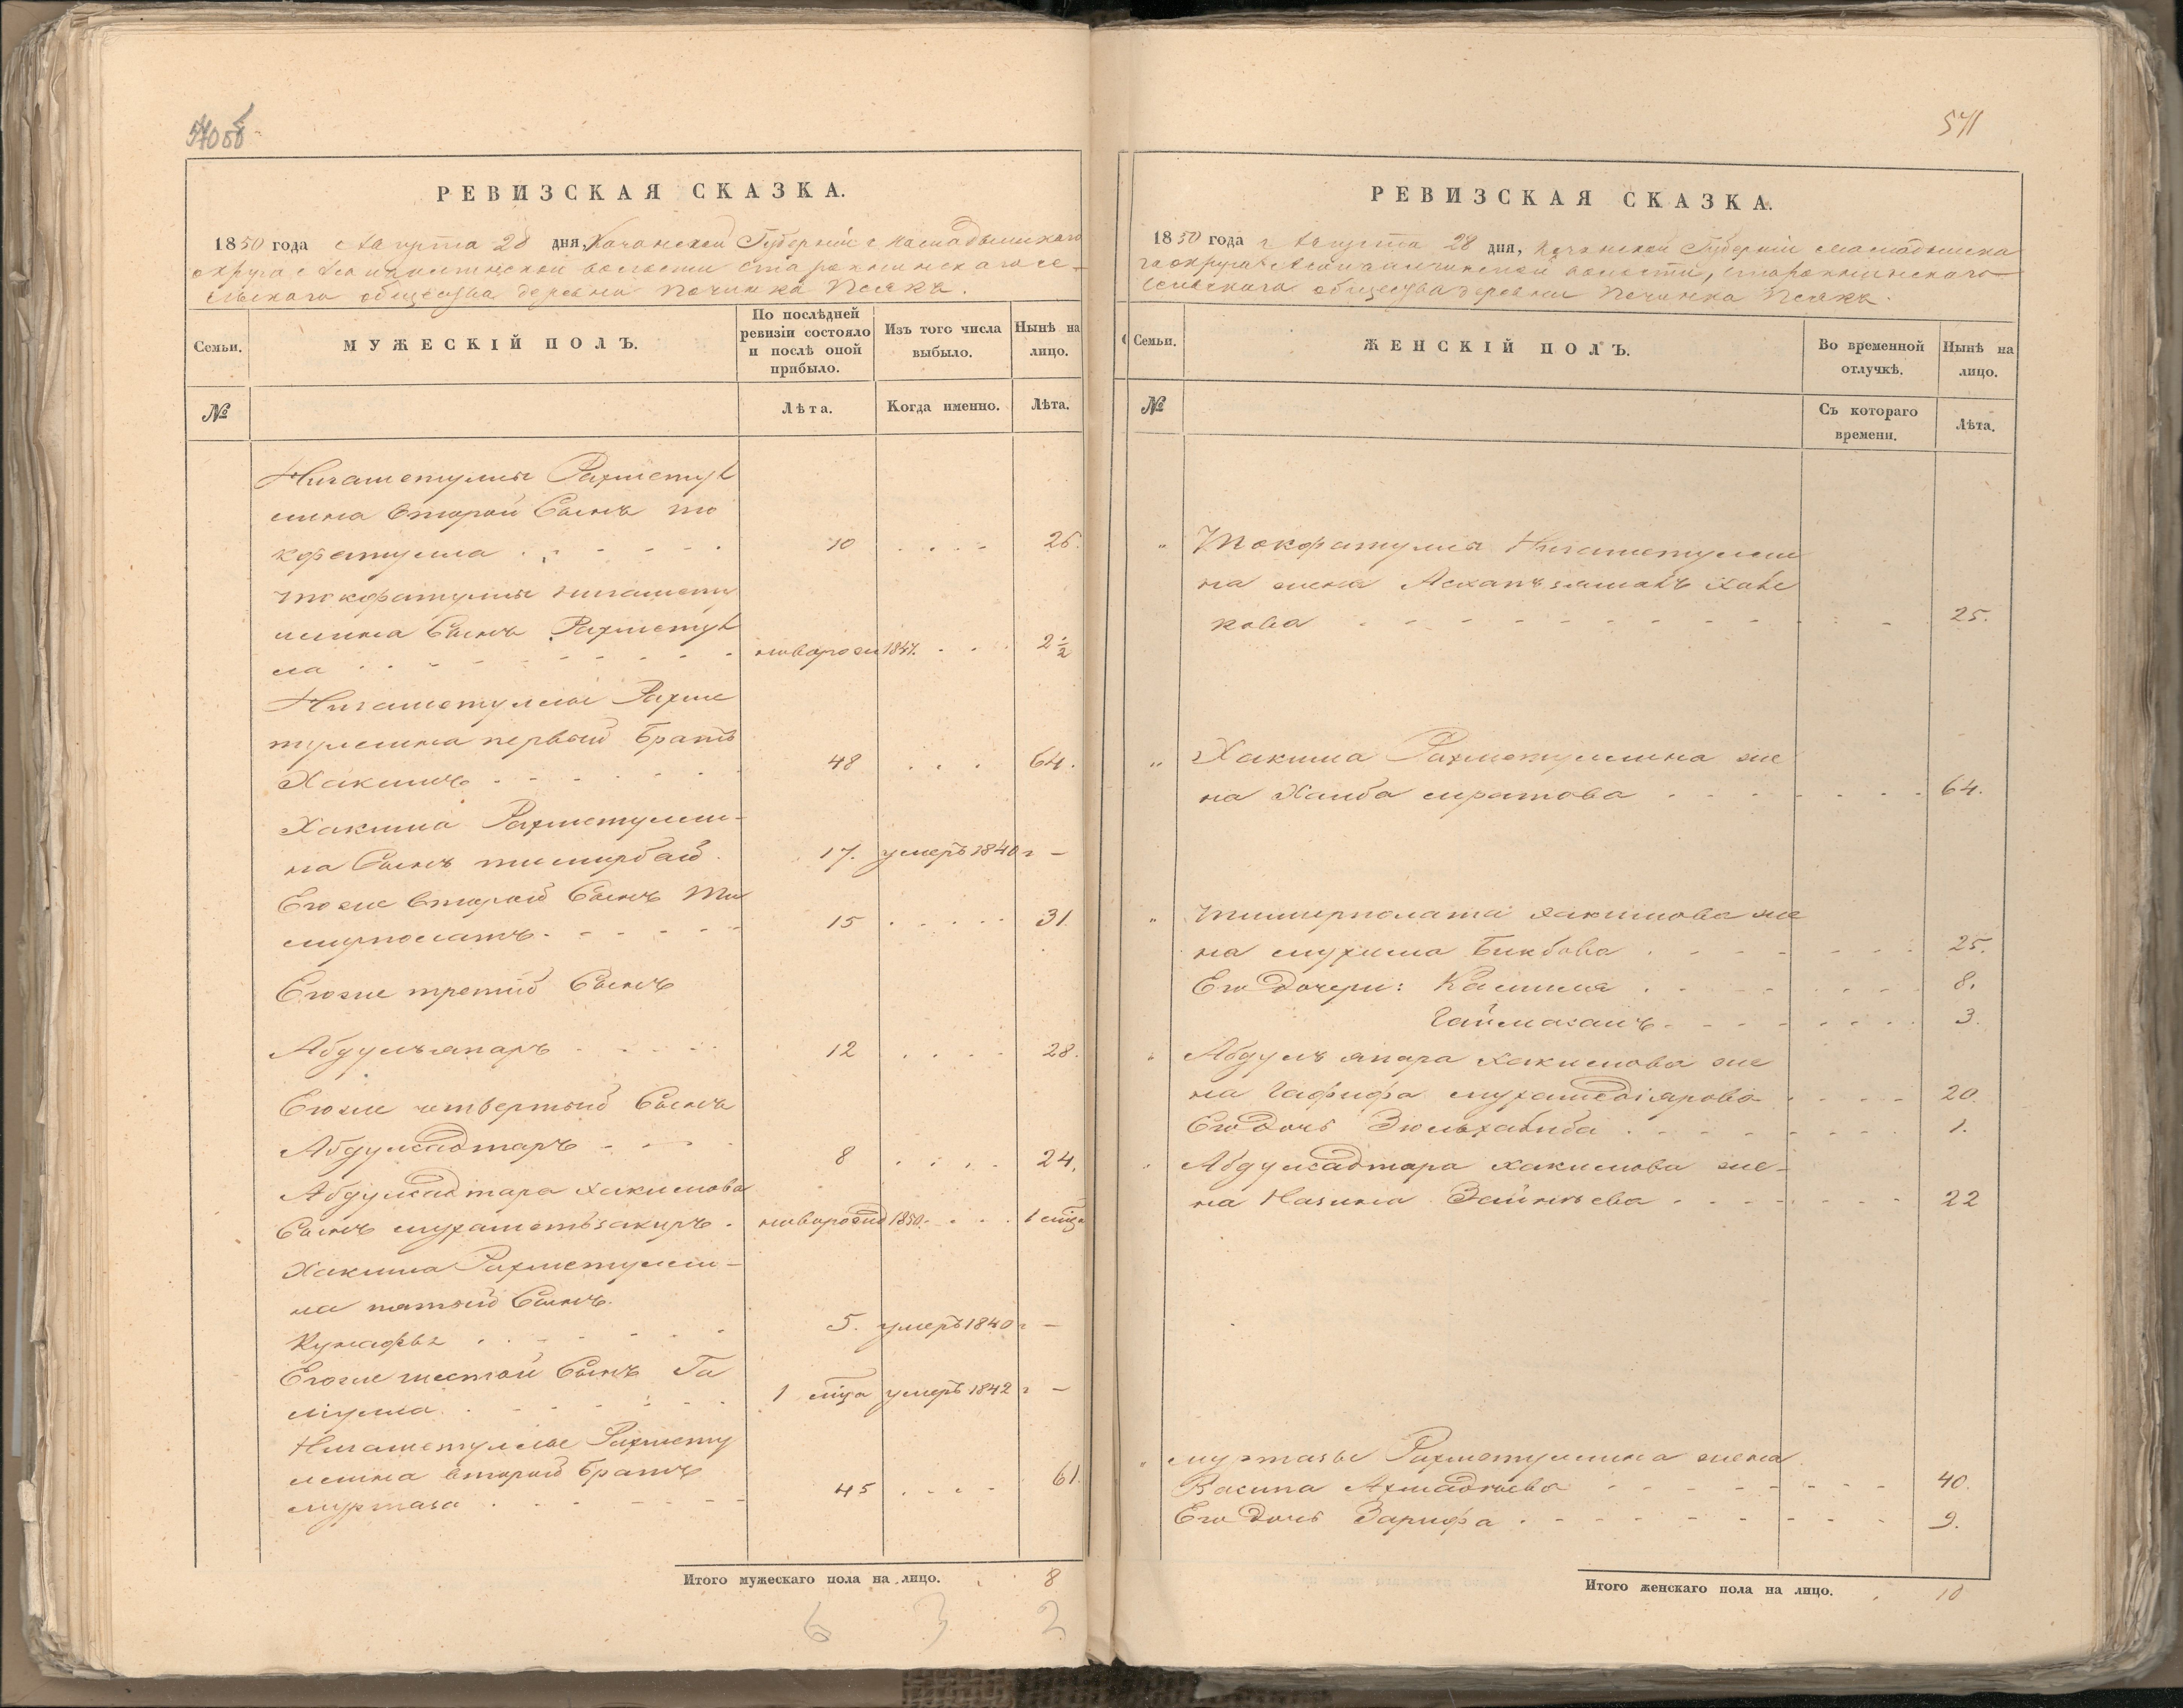 570об
РЕВИЗСКАЯ СКАЗКА.
1850 года Августа 28 дня, Казанской Губерніи Мамадышскаго
округа волости сель-
скаго общества деревни Починка Псякъ.
Семьи.
МУЖЕСКІЙ ПОЛЪ.
По послѣдней ревизіи состояло и послѣ оной прибыло.
Изъ того числа выбыло.
Нынѣ на лицо.
№
Лѣта.
Когда именно.
Лѣта.
Нигаметуллы Рахметул
лина второй Сынъ
10 . . . . 26.
Нигамету
ллина Сынъ Рахметул
ла новорожд 1847. . . . 2 1/2
Нигаметуллы Рахме
туллина первый Братъ
Хакимъ 48 . . . 64.
Хакима Рахметулли-
на Сынъ тимирбай 17. умеръ 1840 г –
Егоже второй Сынъ Ти
мирполатъ 15 . . . . 31.
Егоже третий Сынъ
Абдулъяпаръ 12 . . . . 28.
Егоже четвертый Сынъ
Абдулсадтаръ 8 . . . . 24.
Абдулсадтара Хакимова
Сынъ мухаметьзакиръ новорожд 1850. . . . 1 мѣца
Хакима Рахметулли-
на пятый Сынъ
5. умеръ 1840 г –
Егоже шестой Сынъ Га
лиулла 1 мѣца умеръ 1842 г –
Нигаметуллы Рахмету
ллина второй Братъ
муртаза 45 . . . . 61.
Итого мужескаго пола на лицо. 8
6 3 2
571
РЕВИЗСКАЯ СКАЗКА.
1850 года Августа 28 дня, Казанской Губерніи мамадышска
го округа волости,
сельскаго общества деревни Починка Псякъ.
Семьи.
ЖЕНСКІЙ ПОЛЪ.
Во временной отлучкѣ.
Нынѣ на лицо.
№
Съ котораго времени.
Лѣта.
" Нигаметулли
на жена
25.
" Хакима Рахметуллина же
на 64.
" Тимирполата хакимова же
на Бикбова 25.
Его Дочери: Камиля 8.
3.
" Абдулъ япара хакимова же
на Гафифа мухамедіярова 20.
Его Дочь Зюльхабиба 1.
" Абдулсадтара хакимова же-
на Назина 22
" муртазы Рахметуллина жена
40.
Его Дочь Зарифа 9.
Итого женскаго пола на лицо. 10